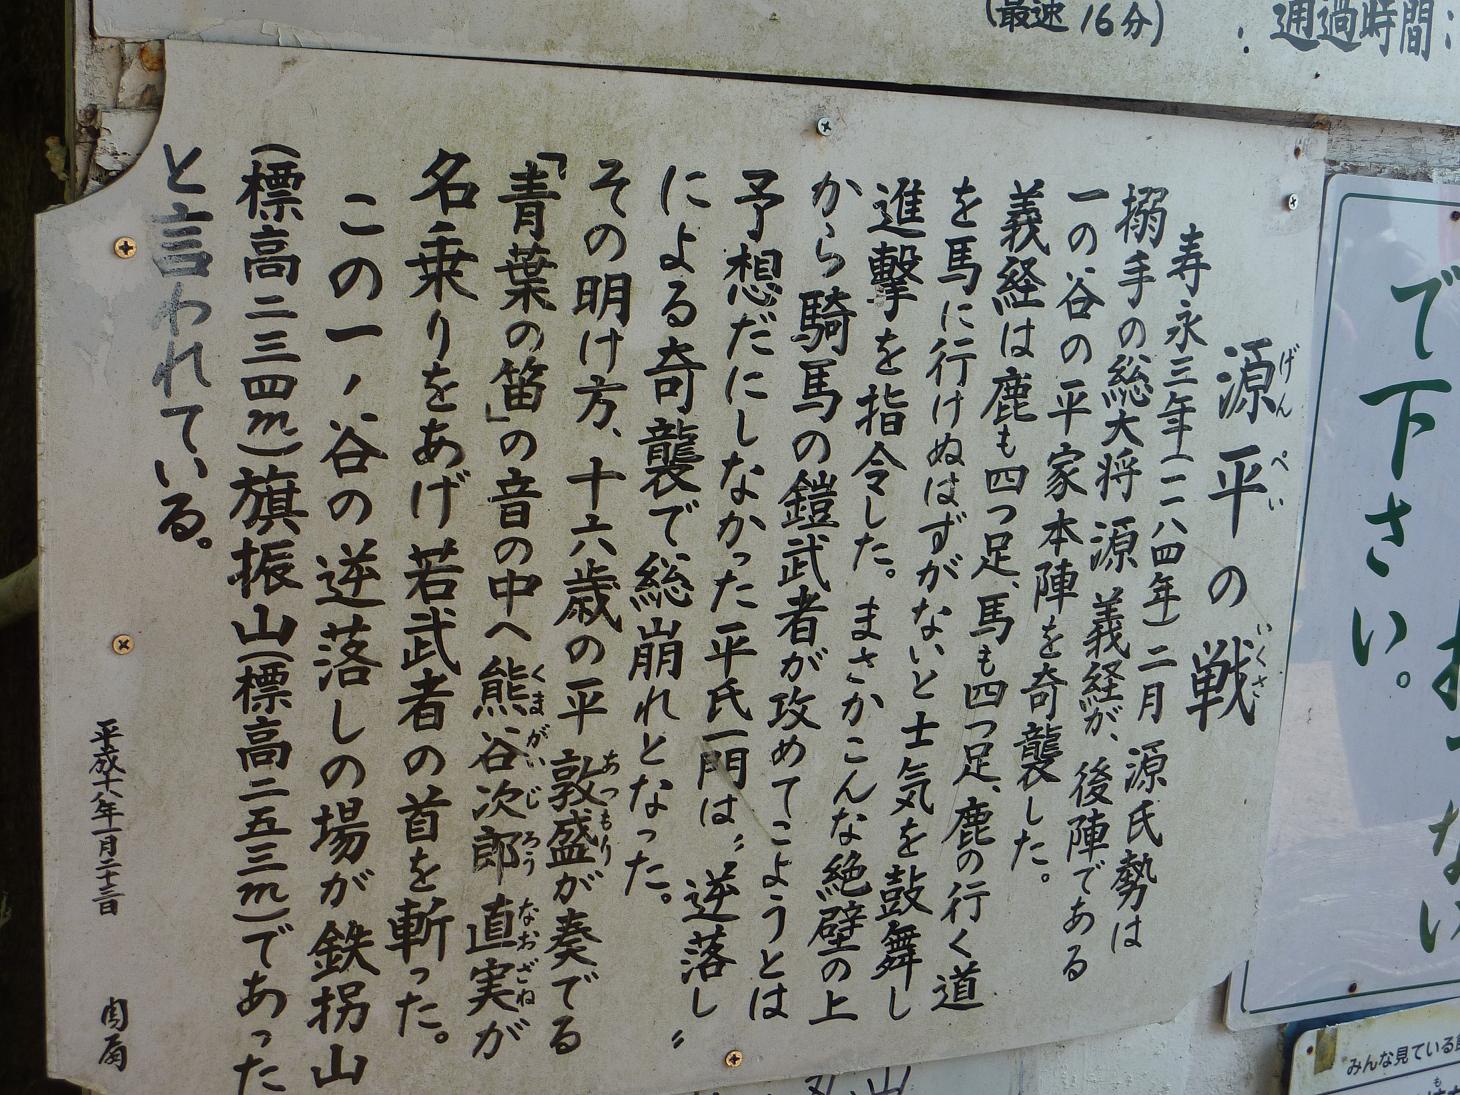 (最速 16分)
通過時間:
源平の戦
げん ぺい いくさ
寿永三年(一一八四年)二月 源氏勢は
搦手の総大将 源 義経が、後陣である
一の谷の平家本陣を奇襲した。
義経は鹿も四つ足、馬も四つ足、鹿の行く道
を馬に行けぬはずがないと士気を鼓舞し
進撃を指令した。まさかこんな絶壁の上
から騎馬の鎧武者が攻めてこようとは
予想だにしなかった平氏一門は〝逆落し〟
による奇襲で総崩れとなった。
その明け方、十六歳の平 敦盛が奏でる
あつもり
「青葉の笛」の音の中へ熊谷次郎直実が
くまがい じろう なおざね
名乗りをあげ若武者の首を斬った。
この一ノ谷の逆落しの場が鉄拐山
(標高二三四m)旗振山(標高二五三m)であった
と言われている。
平成十八年一月二十三日
で下さい。
みんな見ている